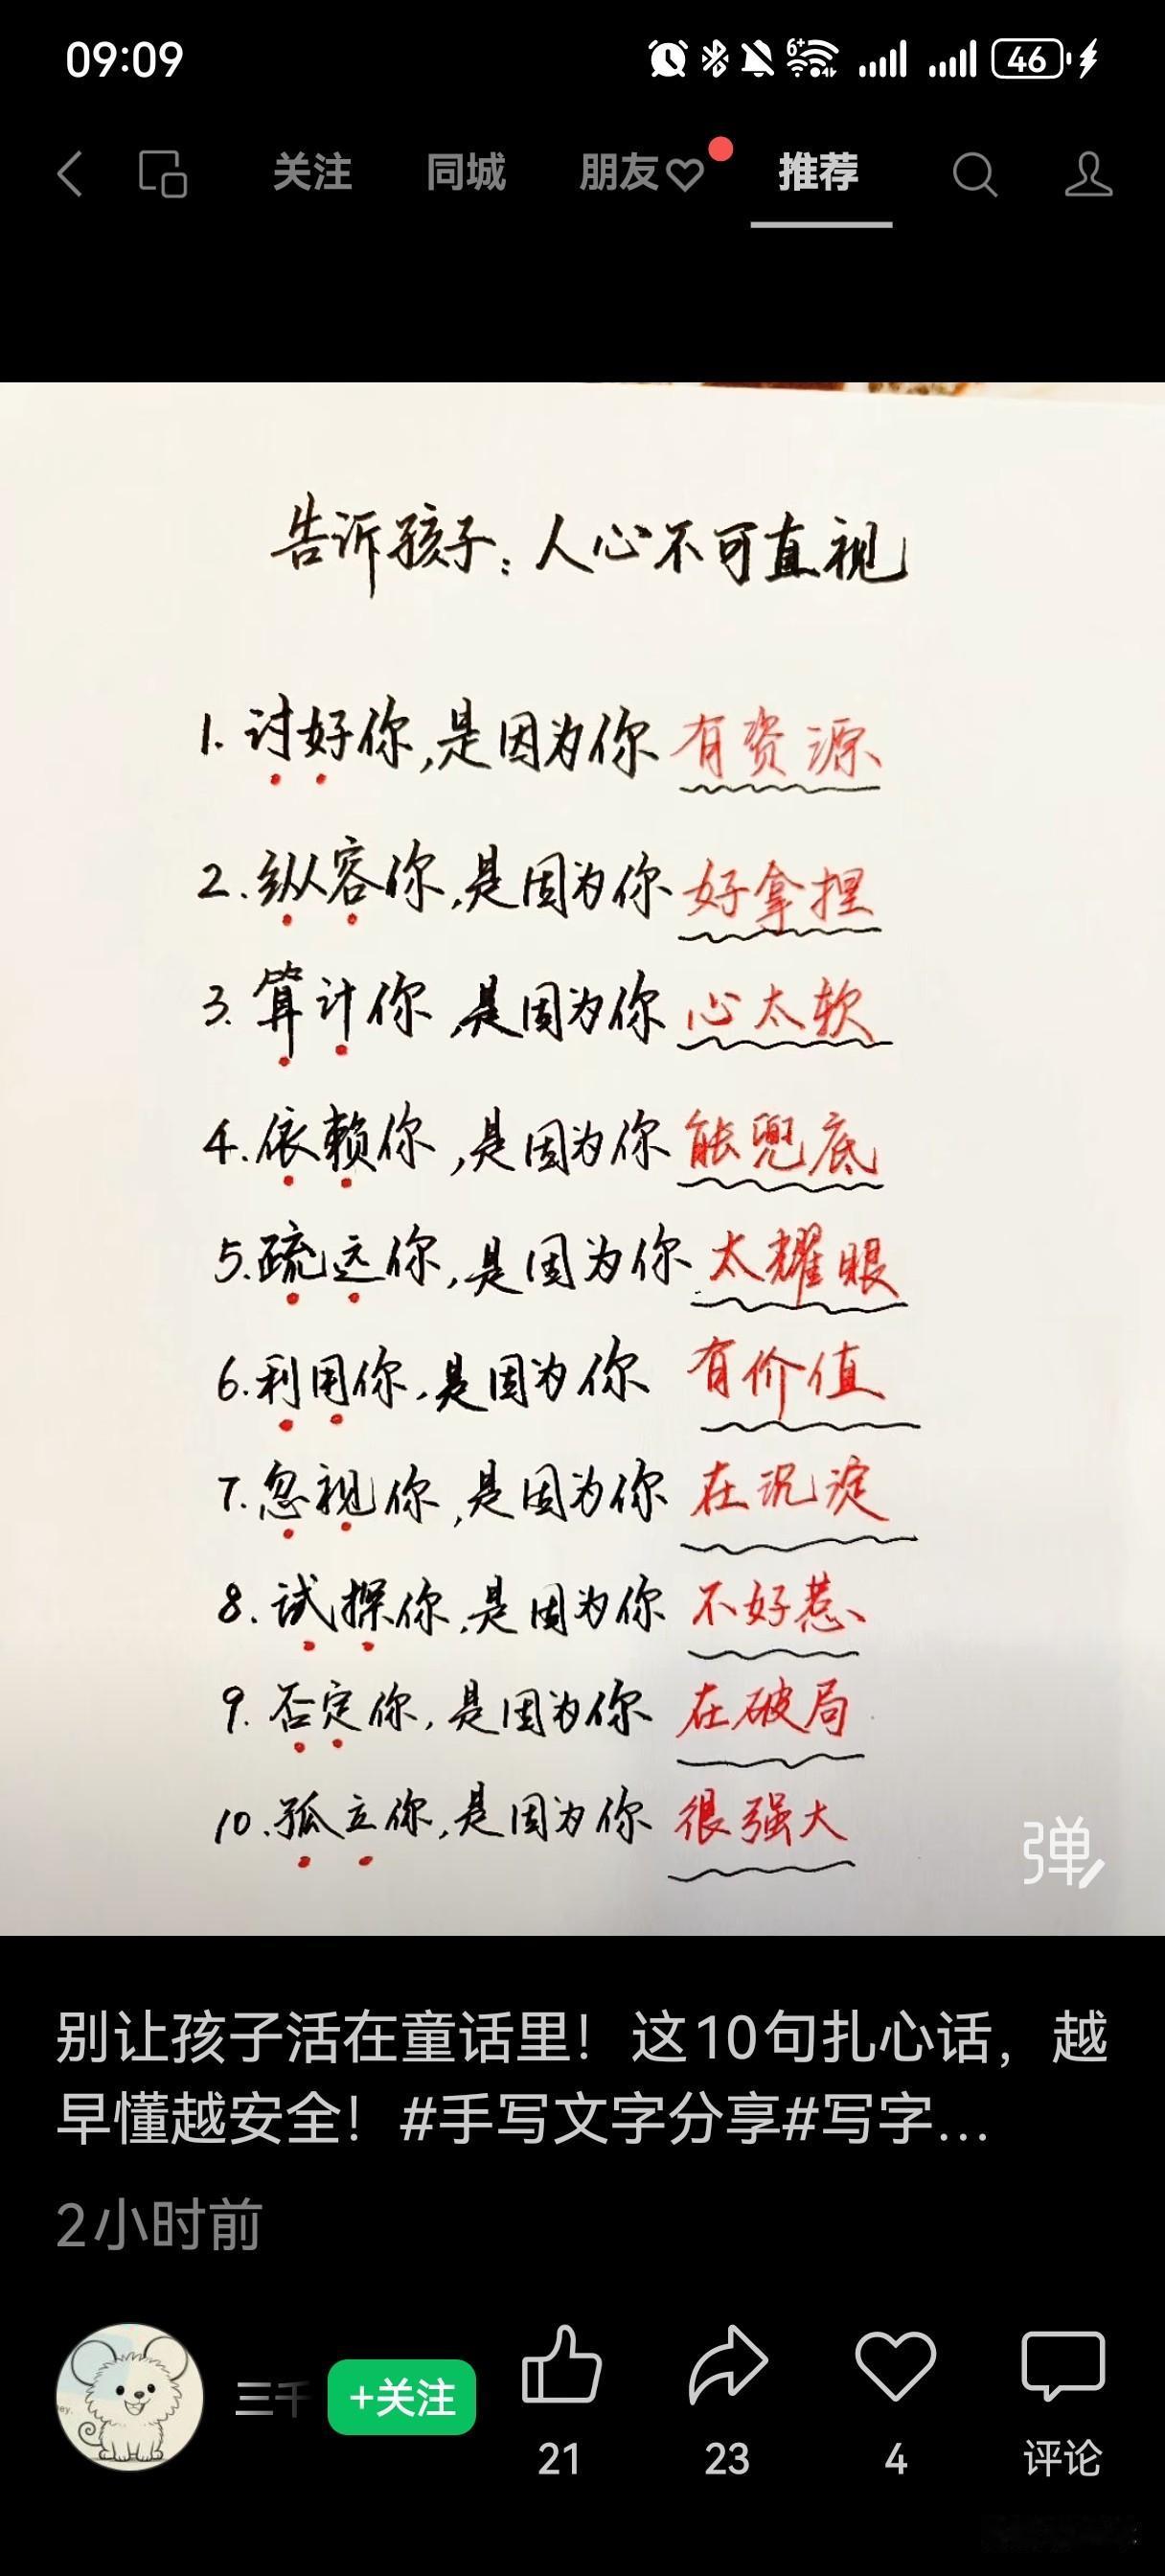 09:09
6+
46
关注 同城 朋友 推荐
告诉孩子：人心不可直视
1. 讨好你，是因为你 有资源
2. 纵容你，是因为你 好拿捏
3. 算计你，是因为你 心太软
4. 依赖你，是因为你 能兜底
5. 疏远你，是因为你 太耀眼
6. 利用你，是因为你 有价值
7. 忽视你，是因为你 在沉淀
8. 试探你，是因为你 不好惹
9. 否定你，是因为你 在破局
10. 孤立你，是因为你 很强大
弹
别让孩子活在童话里！这10句扎心话，越
早懂越安全！#手写文字分享#写字...
2小时前
三千 +关注
21 23 4 评论